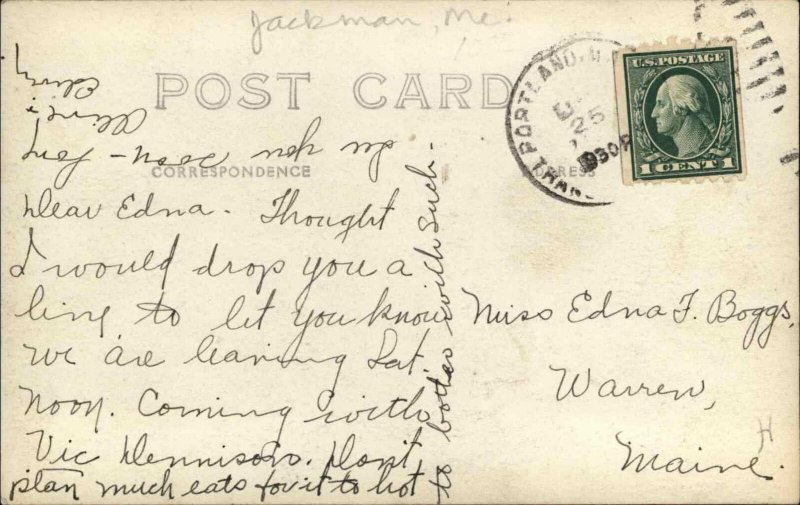 Jackman, Me.
POST CARD
CORRESPONDENCE
PORTLAND, M
25
30P
U.S. POSTAGE
1 CENT 1
Dear Edna. Thought
I would drop you a
line to let you know
we are leaving Sat.
noon. Coming with
Vic Dennison. Don't
plan much eats for it to hot
to bother with such.
Miss Edna F. Boggs,
Warren,
Maine.
H